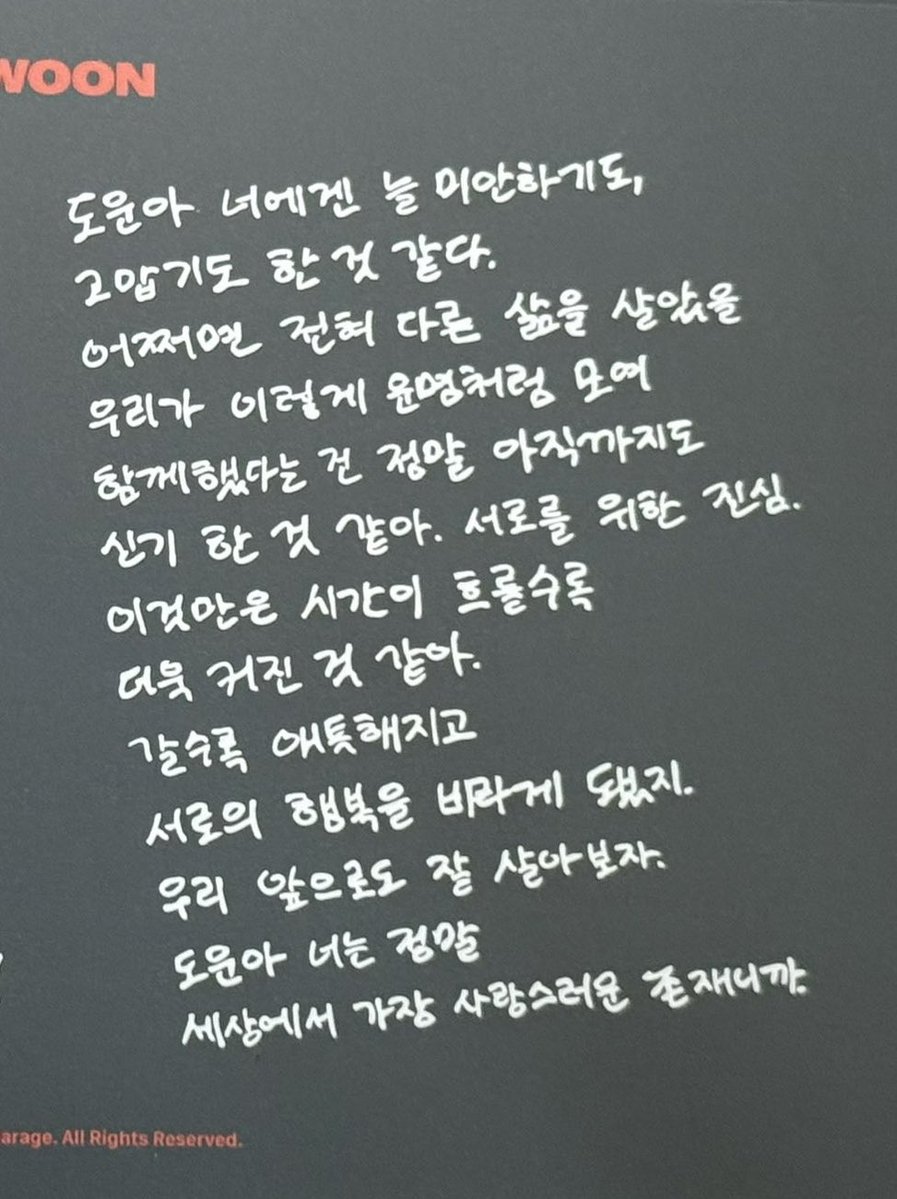 WOON
도운아 너에겐 늘 미안하기도,
고맙기도 한 것 같다.
어쩌면 전혀 다른 삶을 살았을
우리가 이렇게 운명처럼 모여
함께했다는 건 정말 아직까지도
신기 한 것 같아. 서로를 위한 진심.
이것만은 시간이 흐를수록
더욱 커진 것 같아.
갈수록 애틋해지고
서로의 행복을 바라게 됐지.
우리 앞으로도 잘 살아보자.
도운아 너는 정말
세상에서 가장 사랑스러운 존재니까.
arage. All Rights Reserved.